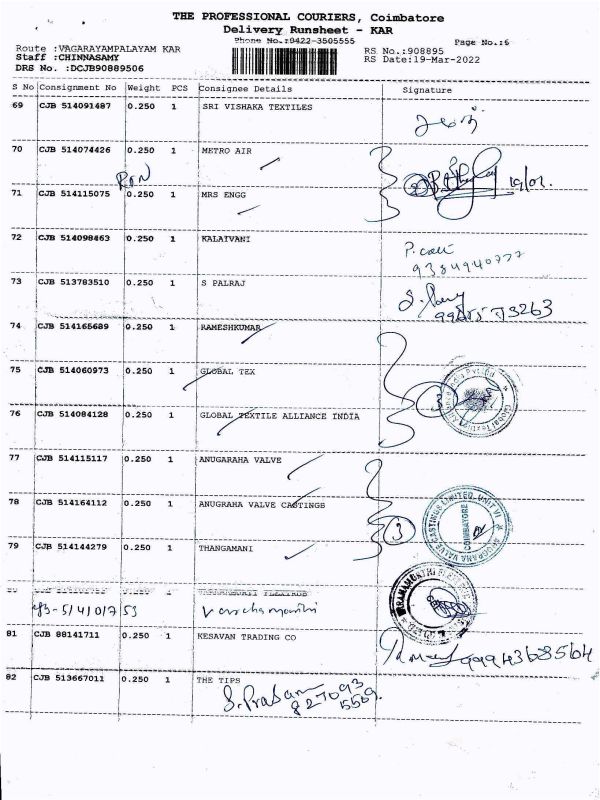 THE PROFESSIONAL COURIERS, Coimbatore
Delivery Runsheet - KAR
Phone No.:0422-3505555
Page No.:6
Route :VAGARAYAMPALAYAM KAR
Staff :CHINNASAMY
DRS No. :DCJB90889506
RS No.:908895
RS Date:19-Mar-2022
S No Consignment No Weight PCS Consignee Details Signature
69 CJB 514091487 0.250 1 SRI VISHAKA TEXTILES
70 CJB 514074426 0.250 1 METRO AIR
71 CJB 514115075 0.250 1 MRS ENGG
72 CJB 514098463 0.250 1 KALAIVANI
9384940777
73 CJB 513783510 0.250 1 S PALRAJ
74 CJB 514165689 0.250 1 RAMESHKUMAR
75 CJB 514060973 0.250 1 GLOBAL TEX
3
76 CJB 514084128 0.250 1 GLOBAL TEXTILE ALLIANCE INDIA
77 CJB 514115117 0.250 1 ANUGARAHA VALVE
78 CJB 514164112 0.250 1 ANUGRAHA VALVE CASTINGS
3
COIMBATORE
79 CJB 514144279 0.250 1 THANGAMANI
81 CJB 88141711 0.250 1 KESAVAN TRADING CO
82 CJB 513667011 0.250 1 THE TIPS